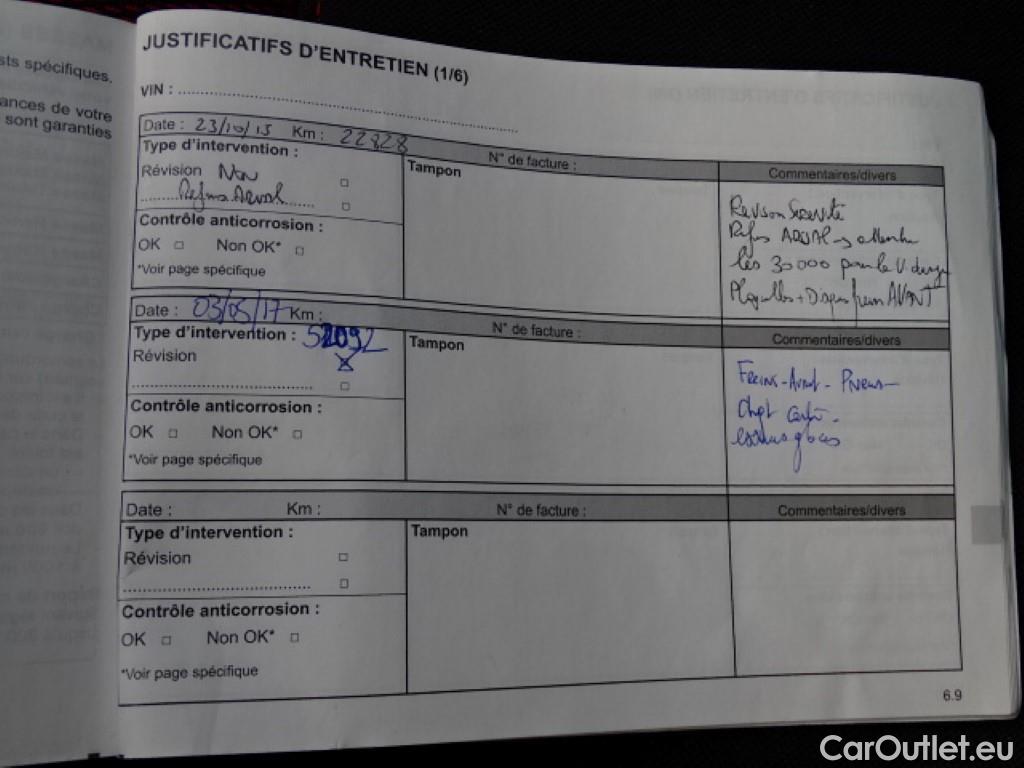 sts spécifiques.
ances de votre
sont garanties
JUSTIFICATIFS D'ENTRETIEN (1/6)
VIN :
Date : 23/10/15 Km : 22828 N° de facture : Commentaires/divers
Type d'intervention : Tampon
Révision Non
Refus Arval
Contrôle anticorrosion :
OK Non OK*
*Voir page spécifique
Revision
Refus ARVAL → attendre
les 30000 pour la Vidange
Plaquettes + Disques freins AVANT
Date : 03/05/17 Km : N° de facture : Commentaires/divers
Type d'intervention : 52092 Tampon
Révision
Contrôle anticorrosion :
OK Non OK*
*Voir page spécifique
Freins - Avant - Pneus
Chgt
essuis glaces
Date : Km : N° de facture : Commentaires/divers
Type d'intervention : Tampon
Révision
Contrôle anticorrosion :
OK Non OK*
*Voir page spécifique
6.9
CarOutlet.eu